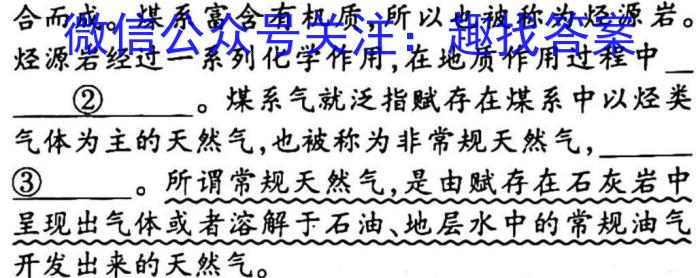 合而成。煤系富含有机质,所以也被称为烃源岩。
微信公众号关注:趣找答案
烃源岩经过一系列化学作用,在地质作用过程中
②。煤系气就泛指赋存在煤系中以烃类
气体为主的天然气,也被称为非常规天然气,
③。所谓常规天然气,是由赋存在石灰岩中
呈现出气体或者溶解于石油、地层水中的常规油气
开发出来的天然气。